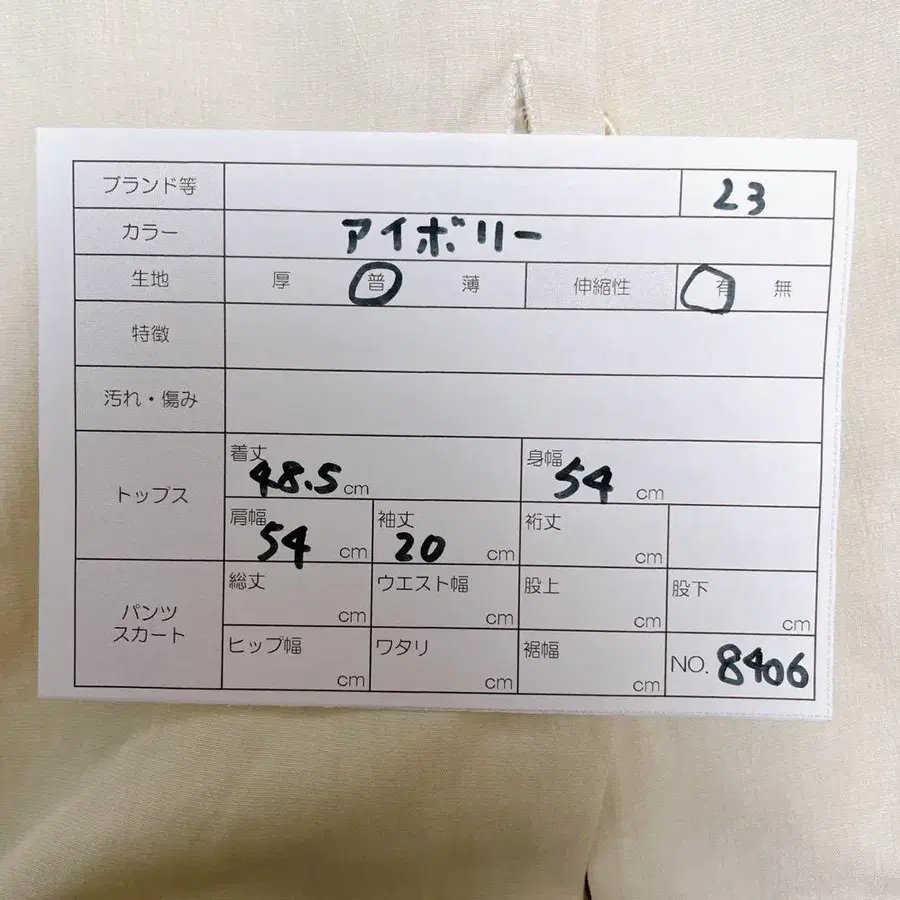 ブランド等 23
カラー アイボリー
生地 厚 普 薄 伸縮性 有 無
特徴
汚れ・傷み
トップス
着丈 48.5 cm 身幅 54 cm
肩幅 54 cm 袖丈 20 cm 裄丈 cm
パンツ
スカート
総丈 cm ウエスト幅 cm 股上 cm 股下 cm
ヒップ幅 cm ワタリ cm 裾幅 cm NO. 8406